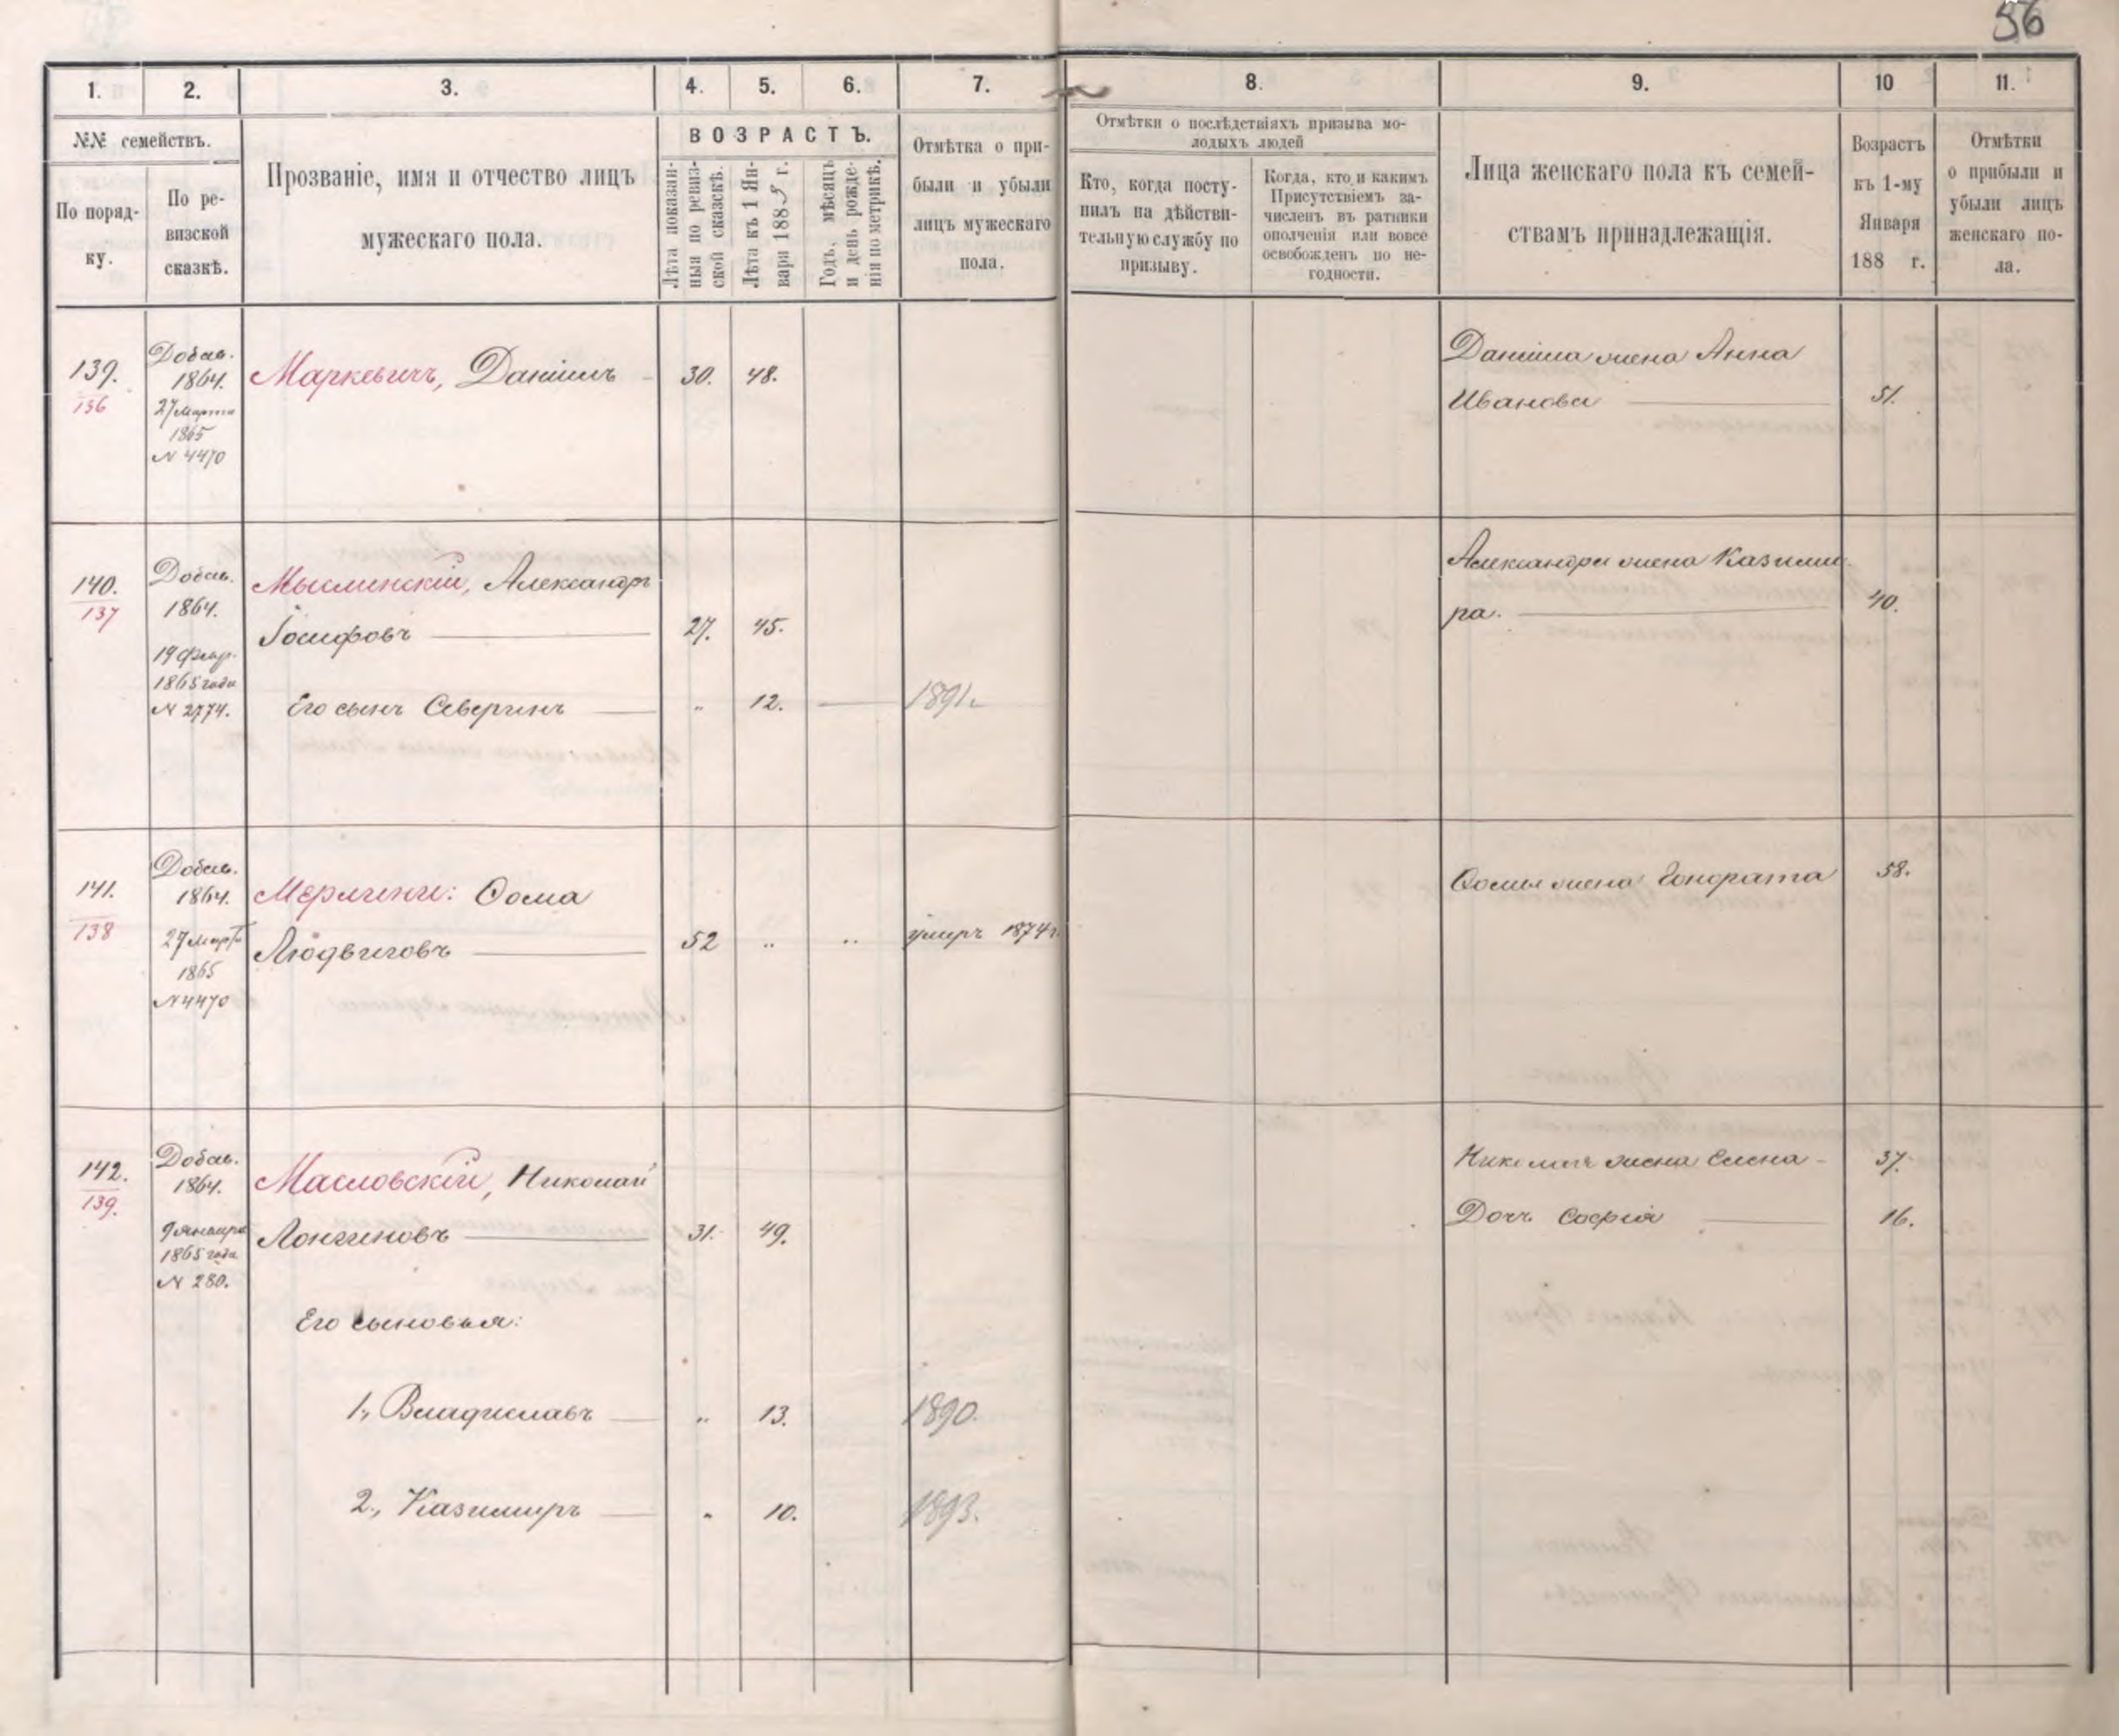 56
1. 2. 3. 4. 5. 6. 7. 8. 9. 10 11.
№№ семействъ.
По поряд-
ку.
По ре-
визской
сказкѣ.
Прозваніе, имя и отчество лицъ
мужескаго пола.
ВОЗРАСТЪ.
Лѣта показан-
ныя по ревиз-
ской сказскѣ.
Лѣта къ 1 Ян-
варя 1885 г.
Годъ, мѣсяцъ
и день рожде-
нія по метрикѣ.
Отмѣтка о при-
были и убыли
лицъ мужескаго
пола.
Отмѣтки о послѣдствіяхъ призыва мо-
лодыхъ людей
Кто, когда посту-
пилъ на дѣйстви-
тельную службу по
призыву.
Когда, кто и какимъ
Присутствіемъ за-
численъ въ ратники
ополченія или вовсе
освобожденъ по не-
годности.
Лица женскаго пола къ семей-
ствамъ принадлежащія.
Возрастъ
къ 1-му
Января
188 г.
Отмѣтки
о прибыли и
убыли лицъ
женскаго по-
ла.
139.
136
Добав.
1864.
27 Марта
1865
N 4470
Маркевичъ, Даніилъ 30. 48.
Даніила жена Анна
Иванова 51.
140.
137
Добав.
1864.
19 февр.
1865 года
N 2774.
Мыслинскій, Александръ
Іосифовъ 27. 45.
Его сынъ Северинъ " 12. 1891.
Александра жена Казими-
ра. 40.
141.
138
Добав.
1864.
27 Марта
1865
N 4470
Мерлини: Ѳома
Людвиговъ 52 " " умеръ 1874 г.
Ѳомы жена Гонората 58.
142.
139.
Добав.
1864.
9 января
1865 года
N 280.
Масловскій, Николай
Лонгиновъ 31. 49.
Его сыновья:
1., Владиславъ " 13. 1890.
2., Казимиръ " 10. 1893.
Николая жена Елена 37.
Дочь Софія 16.